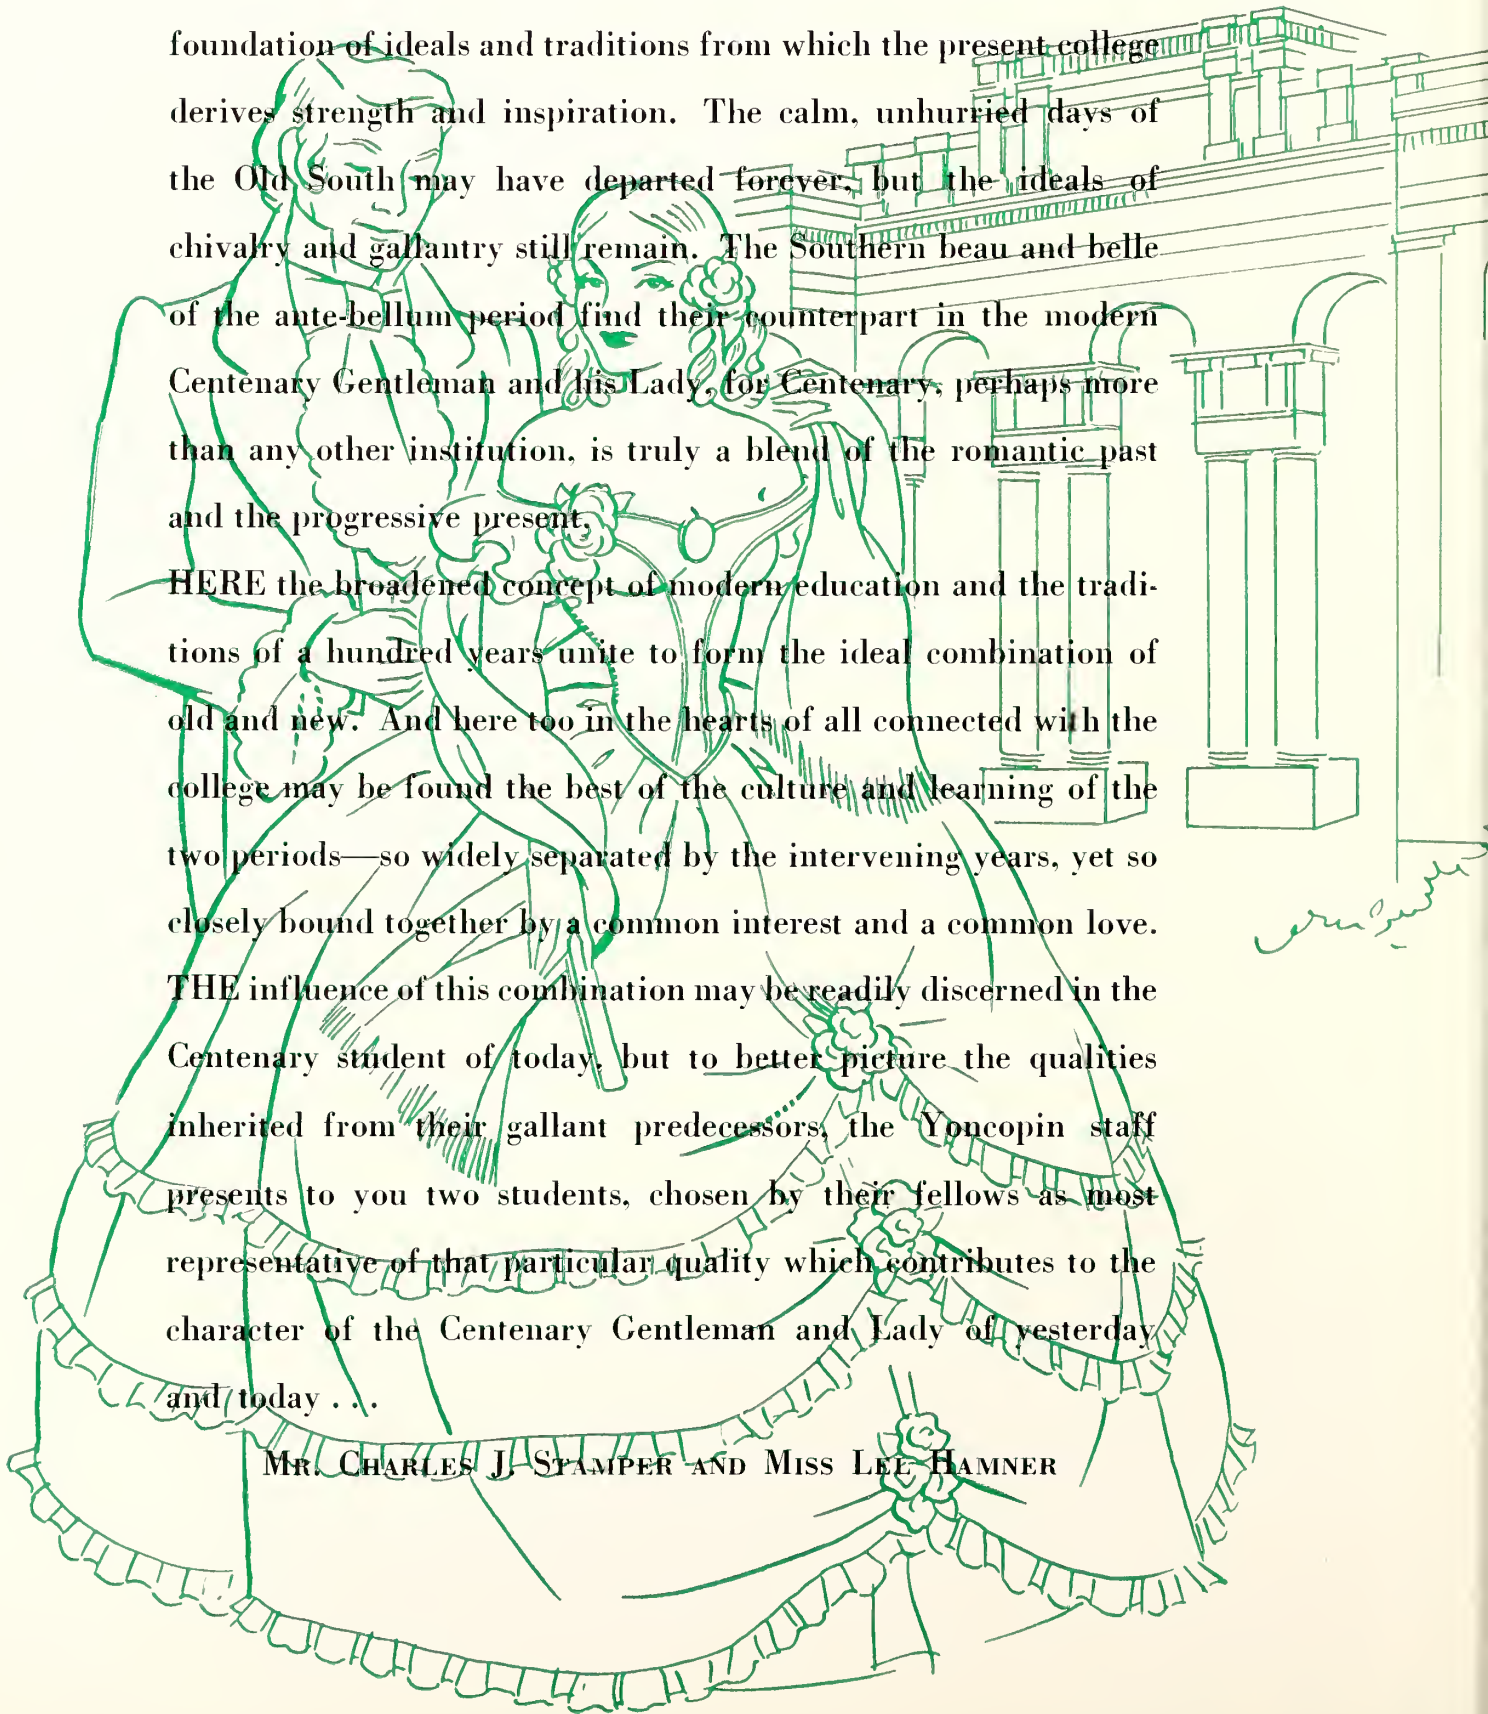 foundation of ideals and traditions from which the present college
derives strength and inspiration. The calm, unhurried days of
the Old South may have departed forever, but the ideals of
chivalry and gallantry still remain. The Southern beau and belle
of the ante-bellum period find their counterpart in the modern
Centenary Gentleman and his Lady, for Centenary, perhaps more
than any other institution, is truly a blend of the romantic past
and the progressive present.
HERE the broadened concept of modern education and the tradi-
tions of a hundred years unite to form the ideal combination of
old and new. And here too in the hearts of all connected with the
college may be found the best of the culture and learning of the
two periods—so widely separated by the intervening years, yet so
closely bound together by a common interest and a common love.
THE influence of this combination may be readily discerned in the
Centenary student of today, but to better picture the qualities
inherited from their gallant predecessors, the Yoncopin staff
presents to you two students, chosen by their fellows as most
representative of that particular quality which contributes to the
character of the Centenary Gentleman and Lady of yesterday
and today . . .
MR. CHARLES J. STAMPER AND MISS LEE HAMNER